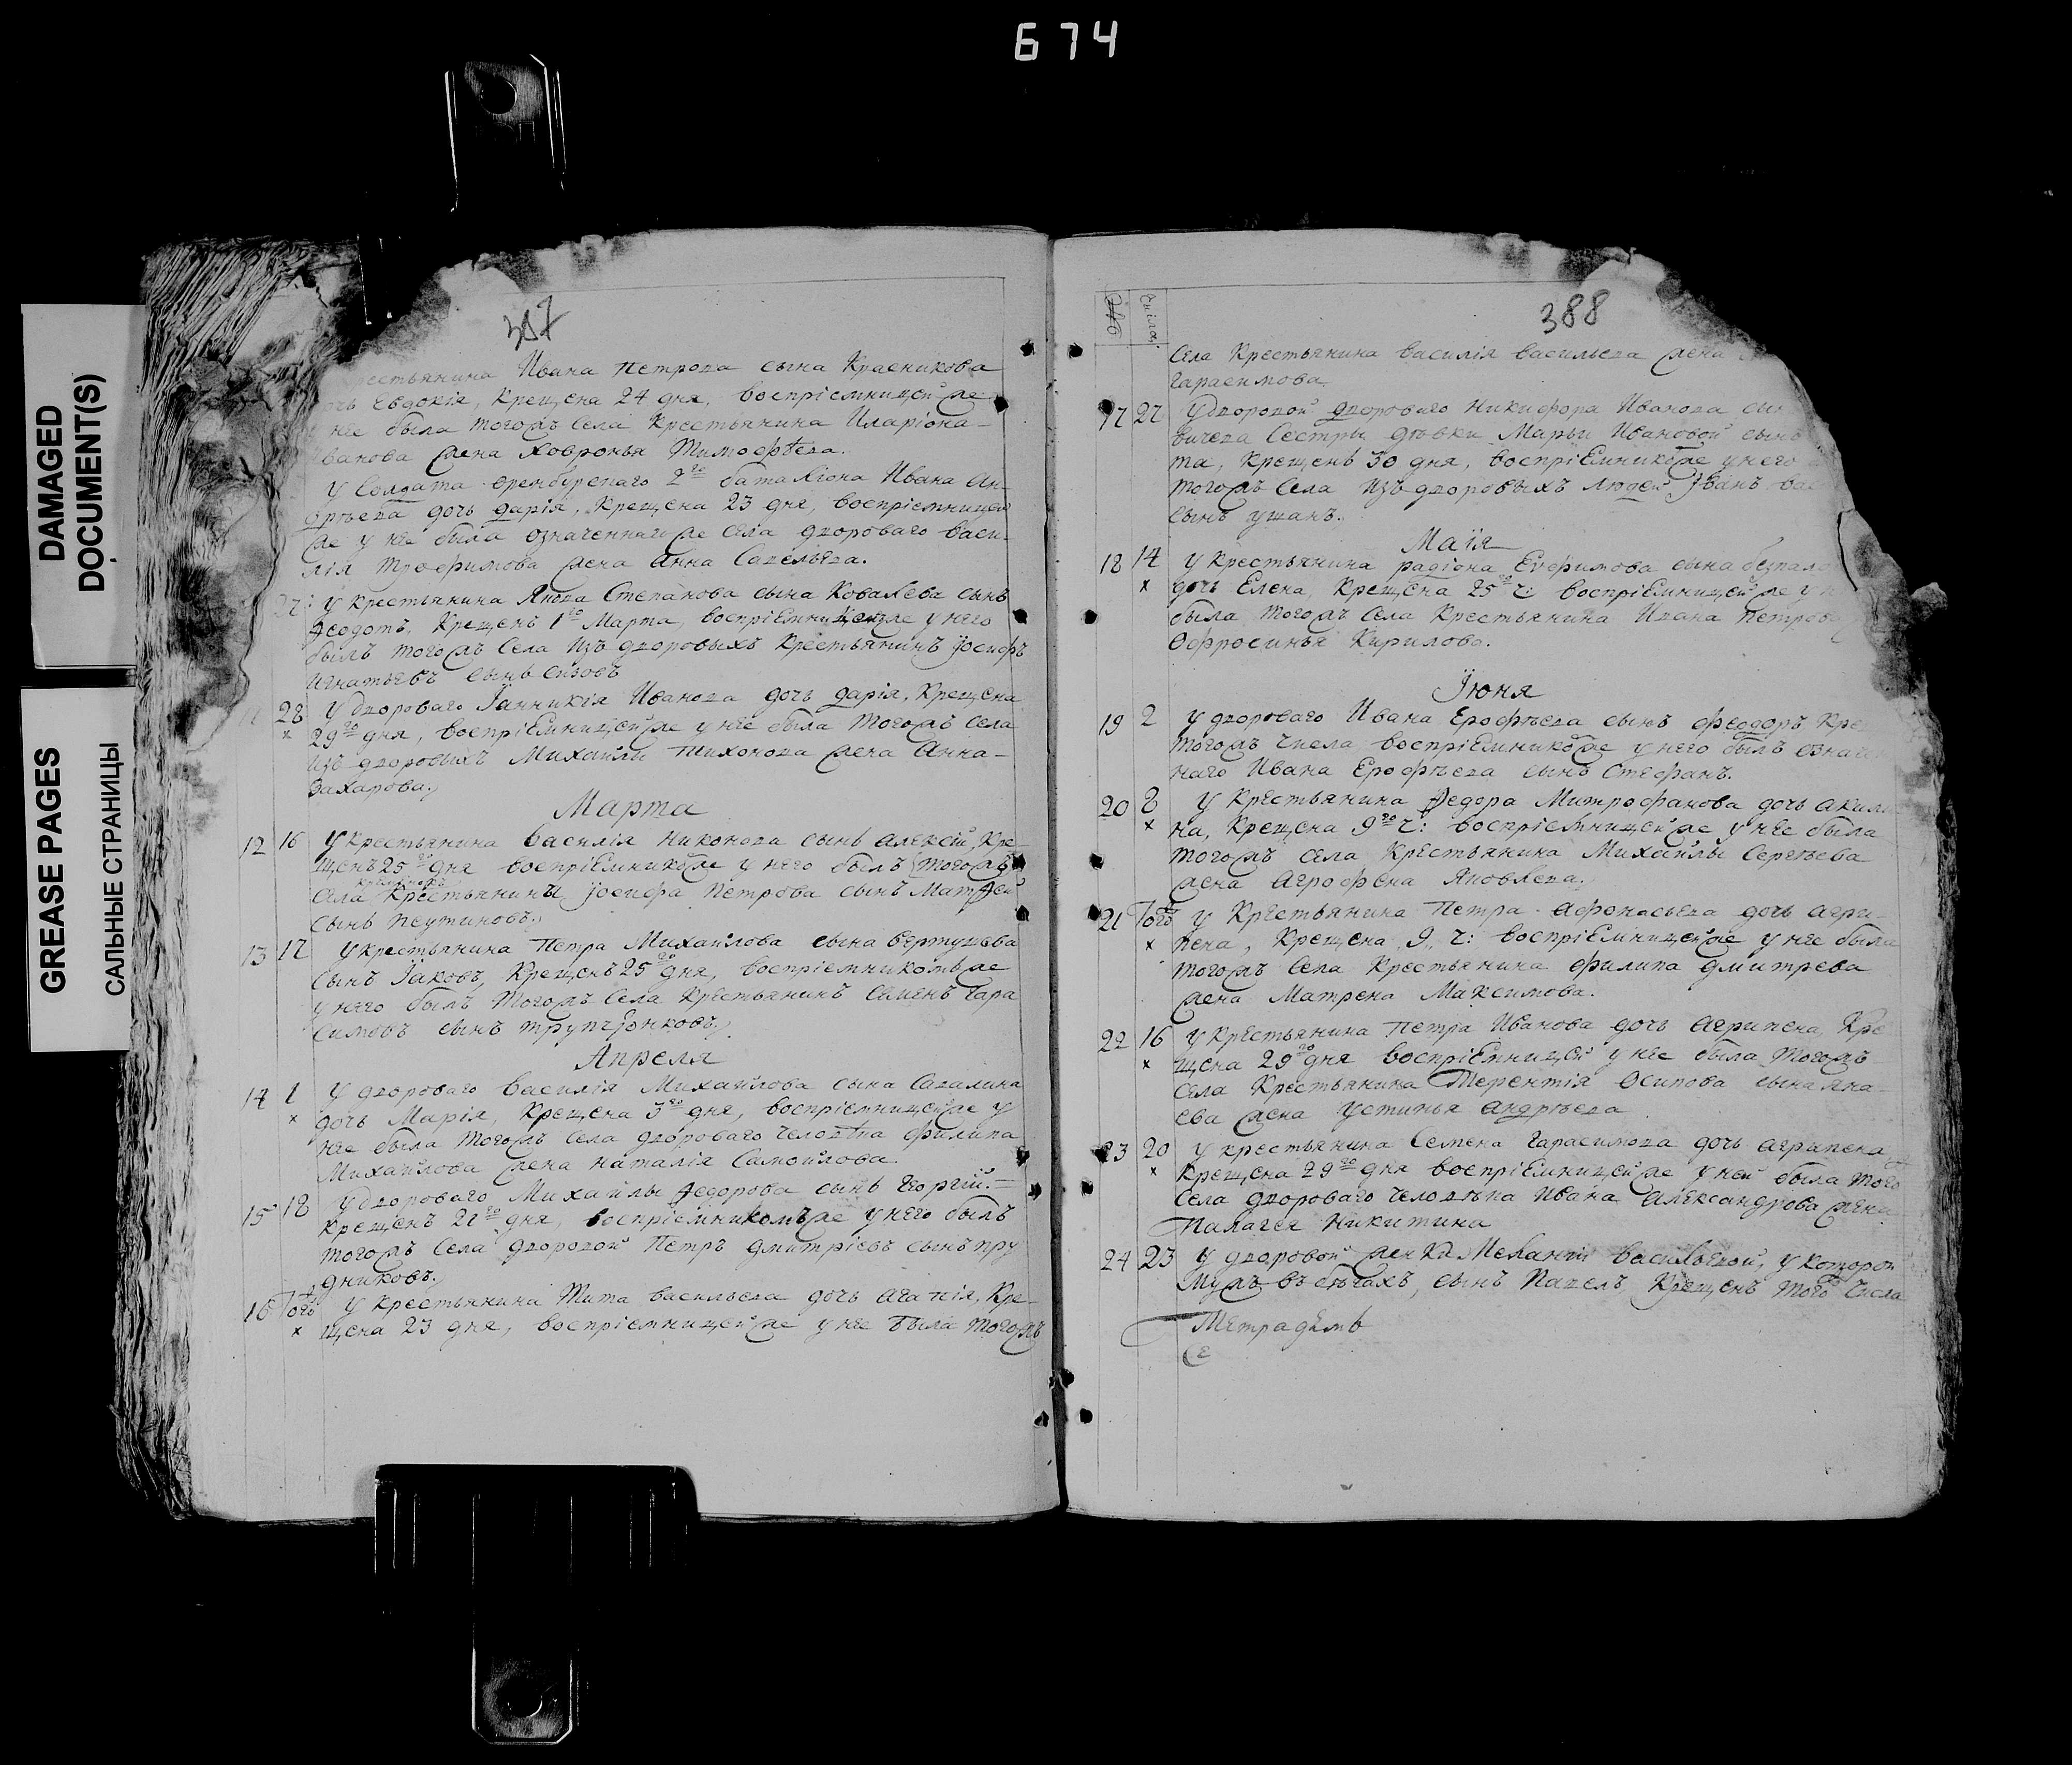 674
DAMAGED
DOCUMENT(S)
GREASE PAGES
САЛЬНЫЕ СТРАНИЦЫ
387
рестьянина Ивана Петрова сына Красникова
очь Евдокія, Крещена 24 дня, воспріемницейже
у нее была тогожъ села Крестьянина Иларіона
ванова жена Ховронья Тимофѣева.
У Солдата оренбурскаго 2го баталіона Ивана Ан-
дрѣева дочь дарія, Крещена 23 дня, воспріемницей
же у нее была означеннагоже села двороваго Васи-
лія Трофимова жена Анна Савельева.
27 У крестьянина Якова Степанова сына Ковалева сынъ
Ѳеодотъ, Крещенъ 1го Марта, воспріемникомже у него
былъ тогожъ села изъ дворовыхъ Крестьянинъ Іосифъ
Игнатьевъ сынъ Сизовъ
11 28 У двороваго Іанникія Иванова дочь дарія, Крещена
× 29го дня, воспріемницейже у нее была тогожъ села
изъ дворовыхъ Михайлы Тихонова жена Анна
Захарова.
Марта
12 16 У крестьянина Василія Никонова сынъ Алексій, Кре-
щенъ 25го дня воспріемникомже у него былъ тогожъ
села Крестьянина Іосифа Петрова сынъ Матѳей
сынъ Пеутиновъ.
13 17 У крестьянина Петра Михайлова сына Вертушева
сынъ Іаковъ, Крещенъ 25го дня, воспріемникомъже
у него былъ тогожъ села Крестьянинъ Семенъ Гара
симовъ сынъ Трупчонковъ.
Апреля
14 1 У двороваго Василія Михайлова сына Савалина
× дочь Марія, Крещена 3го дня, воспріемницейже у
нее была тогожъ села двороваго человѣка Филипа
Михайлова жена Наталія Самойлова.
15 18 У двороваго Михайлы Ѳедорова сынъ Георгій.
Крещенъ 21го дня, воспріемникомъже у него былъ
тогожъ села дворовой Петръ Дмитріевъ сынъ Пру
дниковъ.
16 Тогоъ У крестьянина Тита Васильева дочь Агапія, Кре-
× щена 23 дня, воспріемницейже у нее была тогожъ
388
Число
села Крестьянина Василія Васильева жена
Гарасимова.
17 27 У дворовой двороваго Никифора Иванова сы
вичева Сестры дѣвки Марьи Ивановой сынъ
та, Крещенъ 30 дня, воспріемникомже у него
тогожъ села изъ дворовыхъ людей Іванъ Вас
сынъ Ушанъ.
Маія
18 14 У крестьянина Радіона Ефимова сына Безпало
× дочь Елена, Крещена 25го ч: воспріемницейже у н
была тогожъ села Крестьянина Ивана Петрова
Офросинья Кирилова.
Іюня
19 2 У двороваго Ивана Ерофѣева сынъ Феодоръ Кре
тогожъ числа воспріемникомже у него былъ означе
наго Ивана Ерофѣева сынъ Стефанъ.
20 8 У Крестьянина Ѳедора Митрофанова дочь Акили
× на, Крещена 9го ч: воспріемницейже у нее была
тогожъ села Крестьянина Михайлы Сергѣева
жена Агрофена Яковлева.
21 Тогоъ У Крестьянина Петра Афонасьева дочь Агри-
× пена, Крещена 9, ч: воспріемницейже у нее была
тогожъ села Крестьянина Филипа Дмитрева
жена Матрена Максимова.
22 16 У Крестьянина Петра Иванова дочь Агрипена, Кре
× щена 29го дня воспріемницей у нее была тогожъ
села Крестьянина Терентія Осипова сына
ева жена Устинья Андрѣева
23 20 У крестьянина Семена Гарасимова дочь Аграпена
× Крещена 29го дня воспріемницейже у ней была того
села двороваго человѣка Ивана Александрова жена
Палагея Никитина
24 23 У дворовой женки Меланьи Васильевой, у которой
мужъ въ бѣгахъ, сынъ Павелъ, Крещенъ того числа